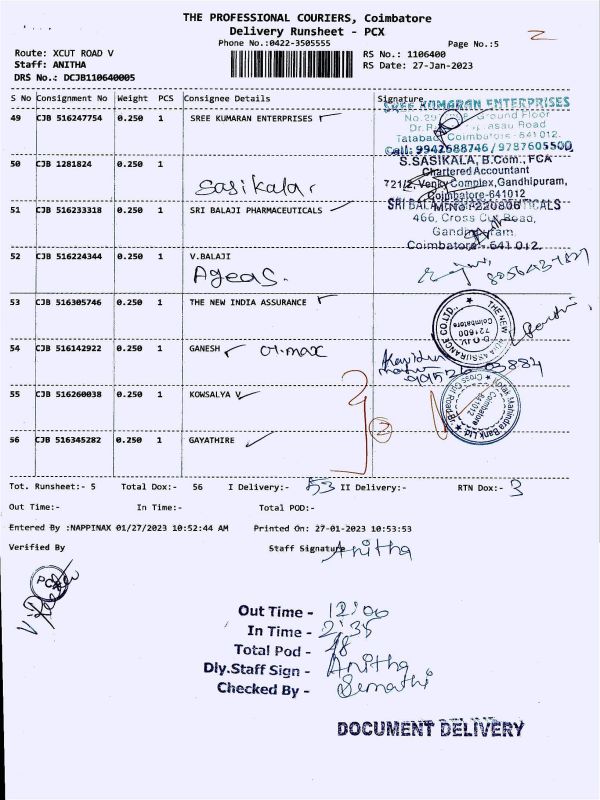 THE PROFESSIONAL COURIERS, Coimbatore
Delivery Runsheet - PCX
Phone No.:0422-3505555
Page No.:5
Route: XCUT ROAD V
RS No.: 1106400
Staff: ANITHA
RS Date: 27-Jan-2023
DRS No.: DCJB110640005
S No Consignment No Weight PCS Consignee Details Signature
49 CJB 516247754 0.250 1 SREE KUMARAN ENTERPRISES
SREE KUMARAN ENTERPRISES
Ground Floor
Road
Coimbatore - 641 012.
Cell: 9942688746 / 9787605500
50 CJB 1281824 0.250 1
Sasikala
S.SASIKALA, B.Com., FCA
Chartered Accountant
721/2, Venky Complex, Gandhipuram,
Coimbatore-641012
M.No: 220806
51 CJB 516233318 0.250 1 SRI BALAJI PHARMACEUTICALS
466, Cross Cut Road,
Gandhipuram,
Coimbatore - 641 012.
52 CJB 516224344 0.250 1 V.BALAJI
Ageas.
53 CJB 516305746 0.250 1 THE NEW INDIA ASSURANCE
THE NEW INDIA ASSURANCE CO.LTD.,
721600
Coimbatore
54 CJB 516142922 0.250 1 GANESH
55 CJB 516260038 0.250 1 KOWSALYA V
Kotak Mahindra Bank Ltd.
Cross Cut Road
Coimbatore
641012
56 CJB 516345282 0.250 1 GAYATHIRE
2
Tot. Runsheet:- 5 Total Dox:- 56 I Delivery:- 53 II Delivery:- RTN Dox:- 3
Out Time:- In Time:- Total POD:-
Entered By :NAPPINAX 01/27/2023 10:52:44 AM Printed On: 27-01-2023 10:53:53
Verified By Staff Signature Anitha
PCX
Out Time - 12:00
In Time - 2:35
Total Pod - 48
Dly.Staff Sign - Anitha
Checked By - Semathi
DOCUMENT DELIVERY